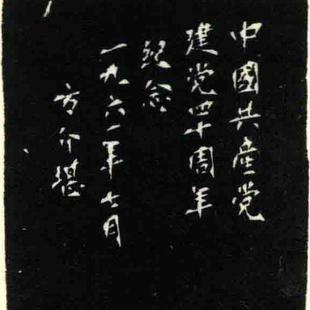 中國共產党
建党四十周年
紀念
一九六一年七月
方介堪